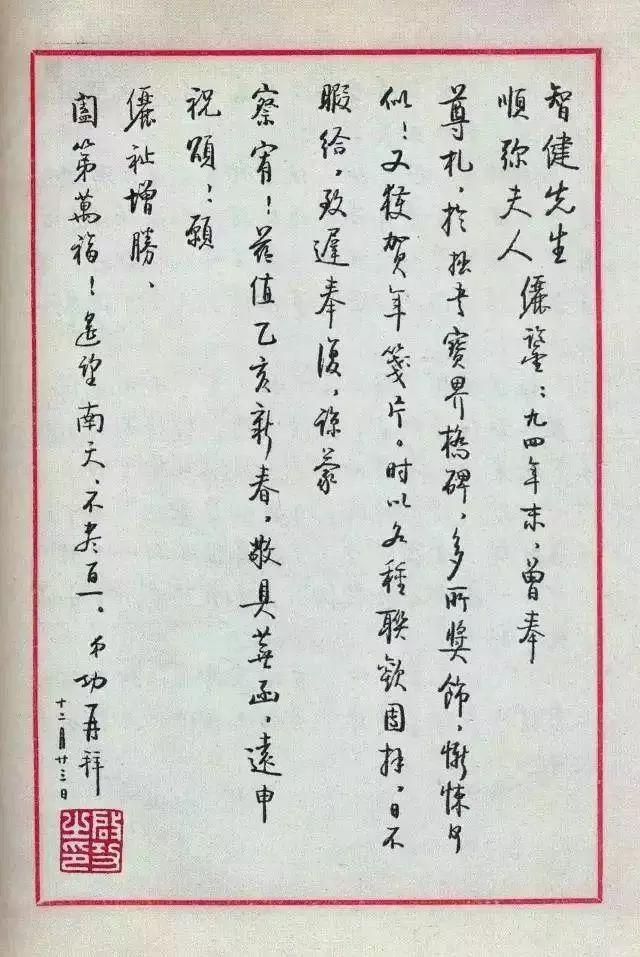 智健先生
順弥夫人 儷鑒：九四年末，曾奉
尊札，於拙書寶界橋碑，多所獎飾，慚悚何
似！又獲賀年箋片。時以各種聯歡團拜，日不
暇給，致遲奉復，諒蒙
察宥！茲值乙亥新春，敬具蕪函，遠申
祝頌；願
儷祉增勝、
闔第萬福！遙望南天，不盡百一。弟功再拜
十二月廿三日
啟功之印